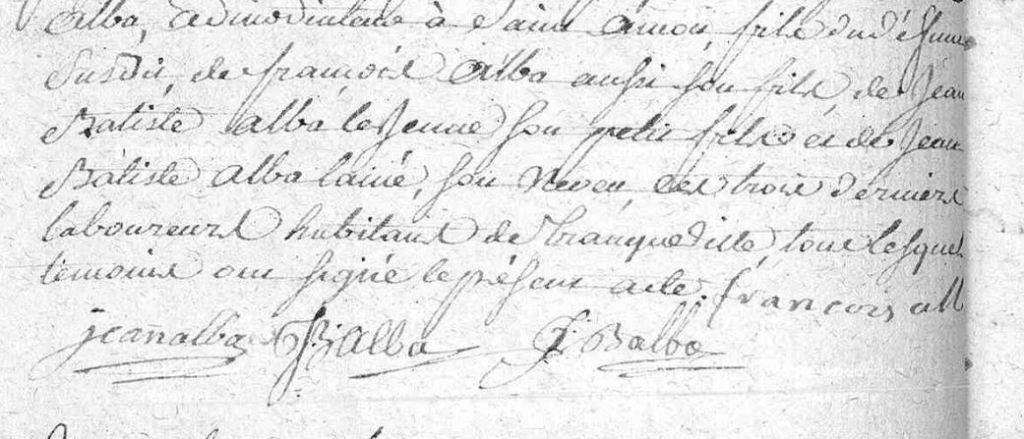 alba, admodiataire à Saint amon, fils du déffunt
Susdit, de françois alba aussi son fils, de Jean
Batiste alba le Jeune son petit fils et de Jean
Batiste alba lainé, son neveu, ces trois derniers
laboureurs habitans de tranqueville, tous lesquels
témoins ont signé le présent acte. françois alb
jean alba JB alba JBalba